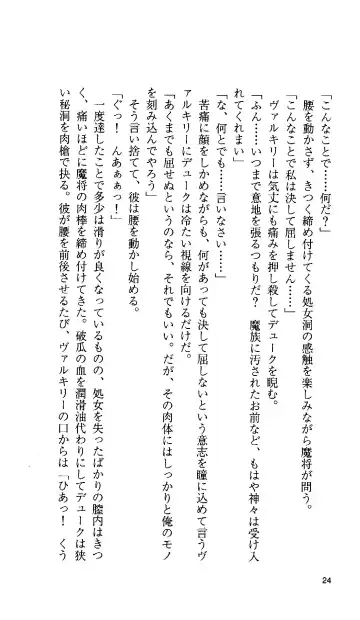 「こんなことで……何だ？」
腰を動かさず、きつく締め付けてくる処女洞の感触を楽しみながら魔将が問う。
「こんなことで私は決して屈しません……」
ヴァルキリーは気丈にも痛みを押し殺してデュークを睨む。
「ふん……いつまで意地を張るつもりだ？　魔族に汚されたお前など、もはや神々は受け入
れてくれまい」
「な、何とでも……言いなさい……」
苦痛に顔をしかめながらも、何があっても決して屈しないという意志を瞳に込めて言うヴ
ァルキリーにデュークは冷たい視線を向けるだけだ。
「あくまでも屈せぬというのなら、それでもいい。だが、その肉体にはしっかりと俺のモノ
を刻み込んでやろう」
そう言い捨て、彼は腰を動かし始める。
「ぐっ！　んあぁぁっ！」
一度達したことで多少は滑りが良くなっているものの、処女を失ったばかりの膣内はきつ
く、痛いほどに魔将の肉棒を締め付けてきた。破瓜の血を潤滑油代わりにしてデュークは狭
い秘洞を肉槍で抉る。彼が腰を前後させるたび、ヴァルキリーの口からは「ひあっ！　くう
24